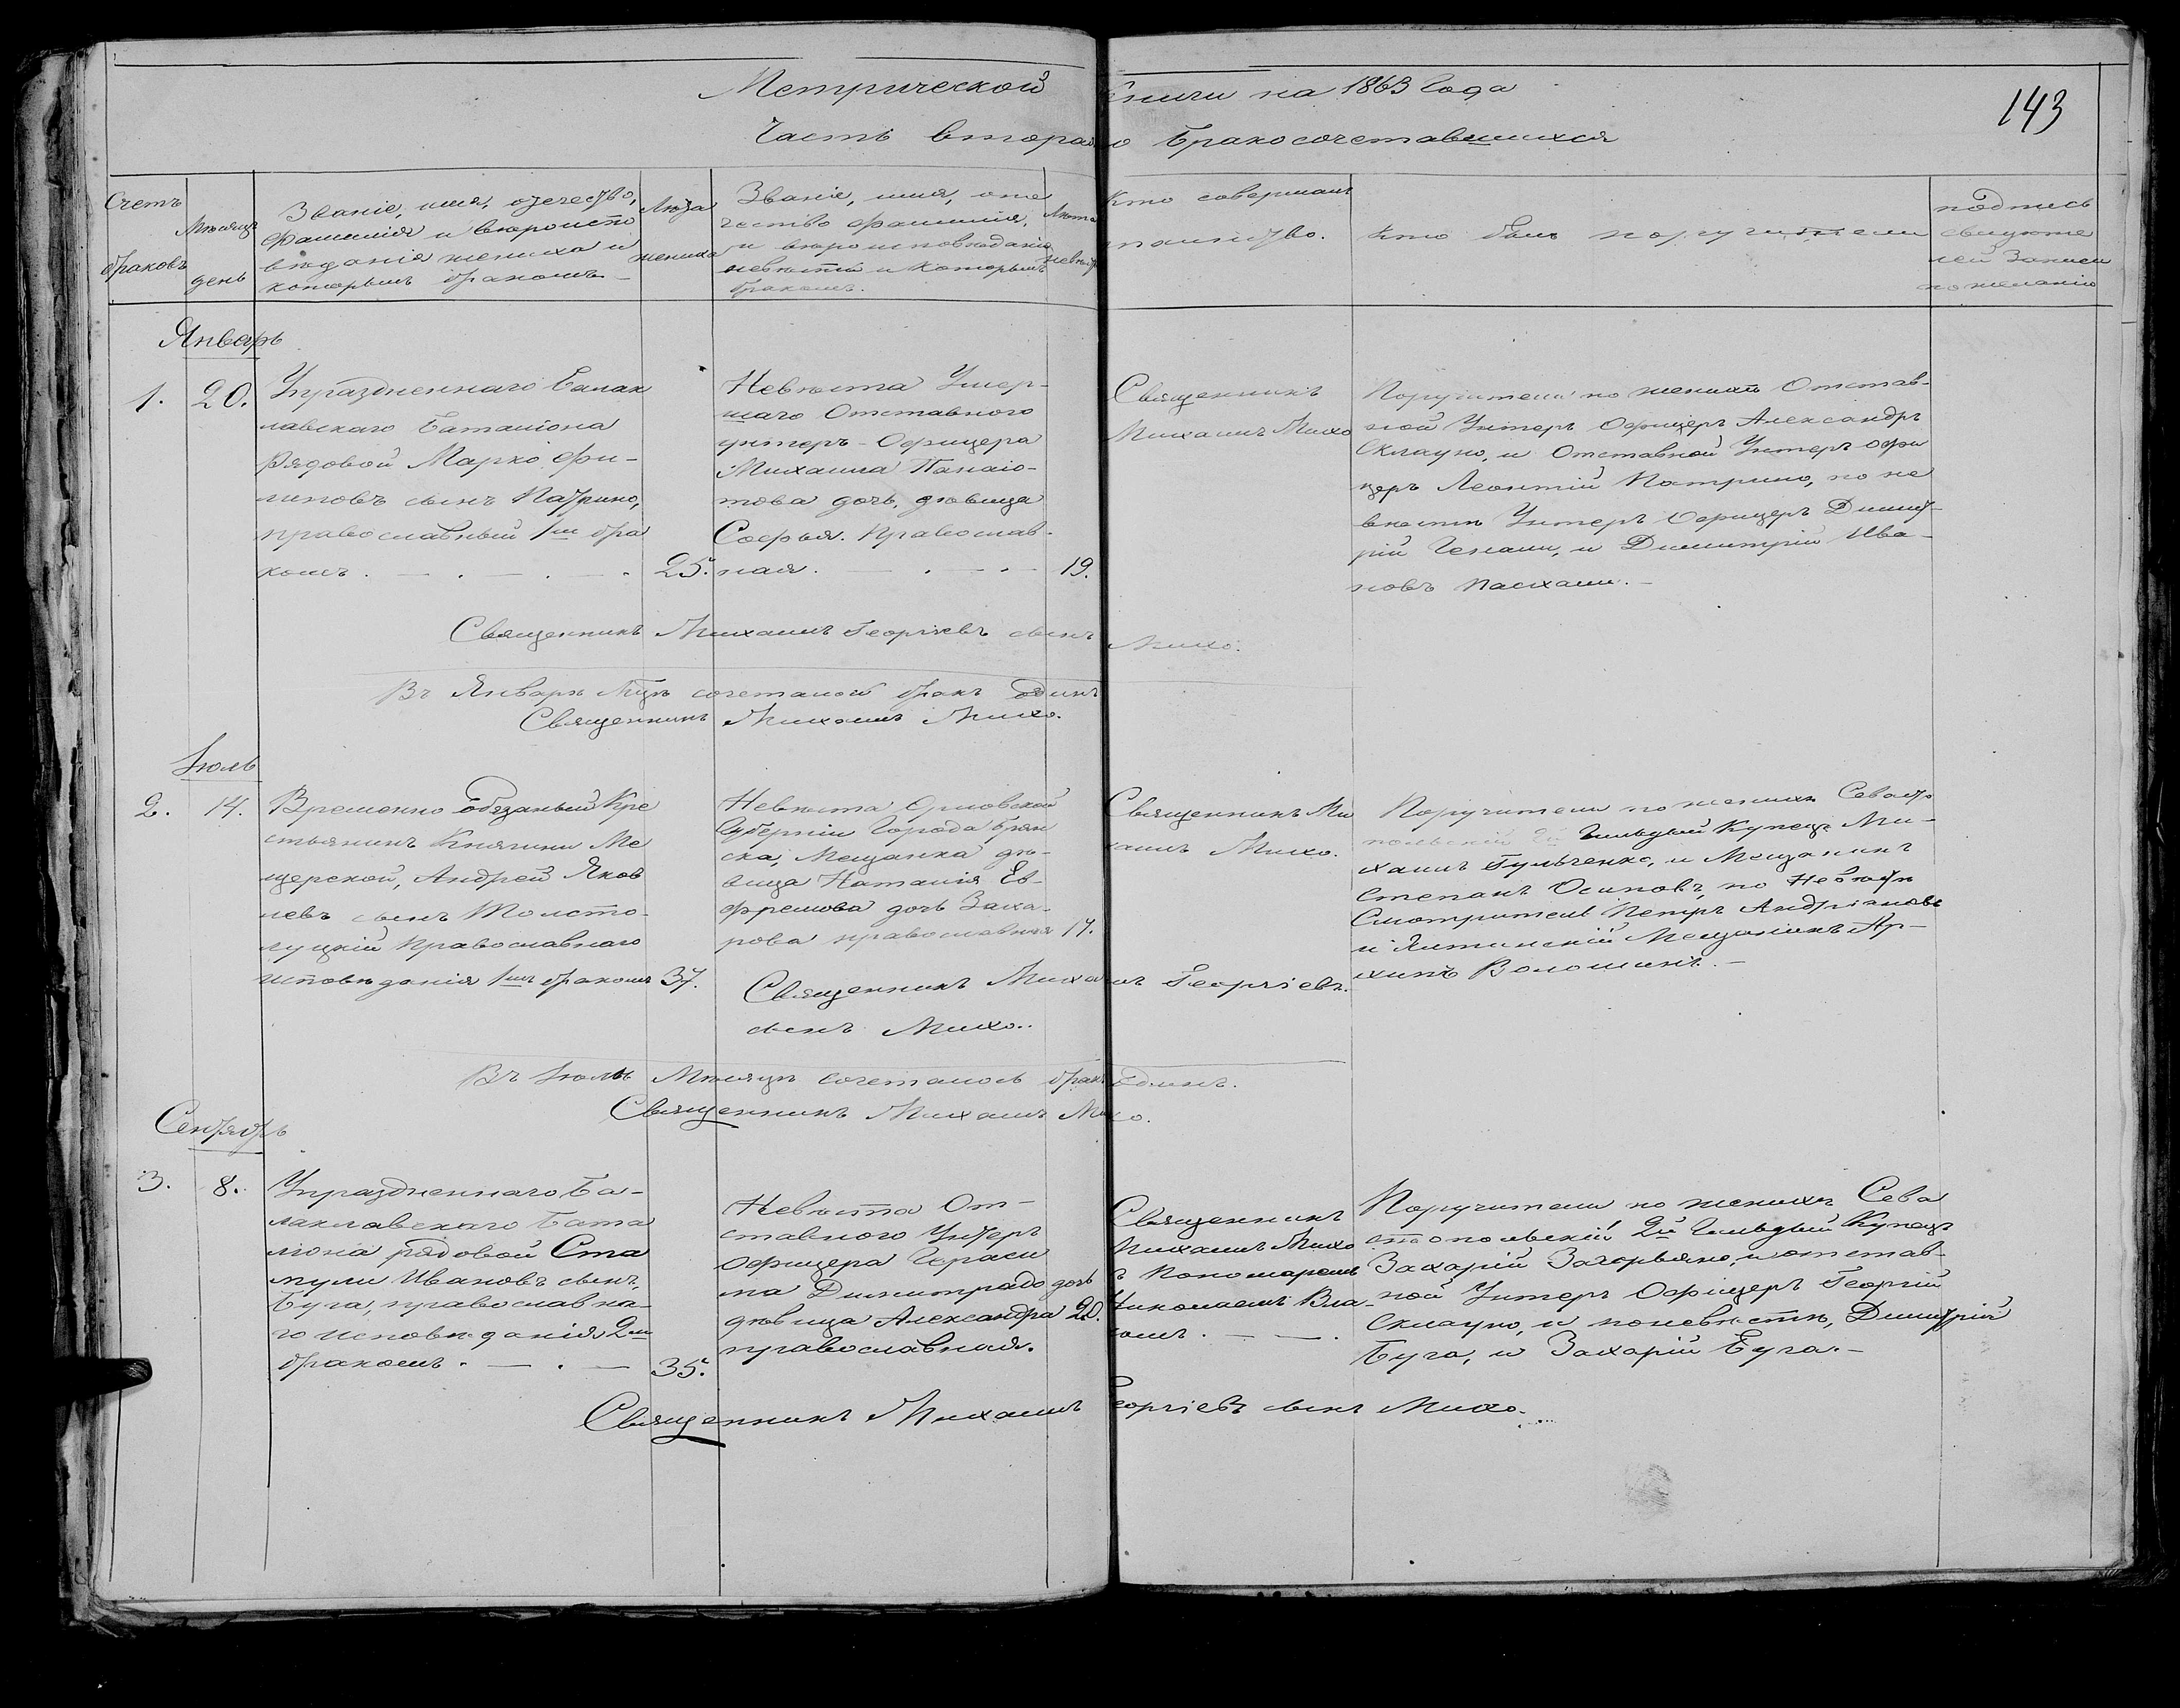 Метрической книги на 1863 Года
143
Часть вторая о бракосочетавшихся
Счетъ браковъ
Мѣсяцъ день
Званіе, имя, отечество,
фамилія и вѣроиспо
вѣданія жениха и
которымъ бракомъ
Лѣта жениха
Званіе, имя, оте
чество фамилія,
и вѣроисповѣданіе
невѣсты и которымъ
бракомъ.
Лѣта невѣсты
Кто совершалъ
таинство.
Кто былъ поручители
подпись
свидѣте
лей Записи
по желанію
Январь
1. 20.
Упраздненнаго Балак
лавскаго Баталіона
Рядовой Марко Фи-
липовъ сынъ Патрино,
православный 1м бра
комъ. 25.
Невѣста Умер-
шаго Отставного
унтеръ-Офицера
Михаила Панаіо-
това дочь, дѣвица
Софья. Православ-
ная. 19.
Священникъ
Михаилъ Михо
Поручители по женихѣ Отстав-
ной Унтеръ Офицеръ Александръ
Склауно, и Отставной Унтеръ Офи
церъ Леонтій Патрино, по не
вѣстѣ Унтеръ Офицеръ Димит-
рій, и Димитрій Ива-
новъ Пасхали.
Священникъ Михаилъ Георгіевъ сынъ Михо.
Въ Январѣ Мцѣ сочеталой бракъ одинъ
Священникъ Михаилъ Михо.
Іюль
2. 14.
Временно обязаный Кре
стьянинъ Княгини Ме
щерской, Андрей Яков
левъ сынъ Толсто-
луцкій Православнаго
исповѣданія 1мъ бракомъ 37.
Невѣста Орловской
Губерніи Города Брян
ска, Мещанка дѣ-
вица Наталія Ев-
фремова дочь Заха-
рова православная 17.
Священникъ Ми
хаилъ Михо.
Поручители по женихѣ Севасто
польскій 2й Гильдіи Купецъ Ми-
хаилъ Гульченко, и Мещанинъ
Степанъ Осиповъ, по Невѣстѣ
Смотритель Петръ Андріановъ
и Ялтинскій Мещанинъ Ар-
хипъ Волошинъ.
Священникъ Михаилъ Георгіевъ
сынъ Михо.
Въ Іюль Мѣсяцѣ сочеталось бракъ одинъ.
Священникъ Михаилъ Михо.
Сентябрь
3. 8.
Упраздненнаго Ба-
лаклавскаго Бата
ліона рядовой Ста
мули Ивановъ сынъ
Буга, православна-
го исповѣданія 2мъ
бракомъ. 35.
Невѣста От-
ставного Унтеръ
Офицера Гераси
ма Димитрадо дочь
дѣвица Александра 20.
православная.
Священникъ
Михаилъ Михо
съ Пономаремъ
Николаемъ Вла-
Поручители по женихѣ Сева
стопольскій 2й Гильдіи Купецъ
Захарій Захорьяно, и отстав-
ной Унтеръ Офицеръ Георгій
Склауно, и поневѣстѣ, Димитрій
Буга, и Захарій Буга.
Священникъ Михаилъ Георгіевъ сынъ Михо.